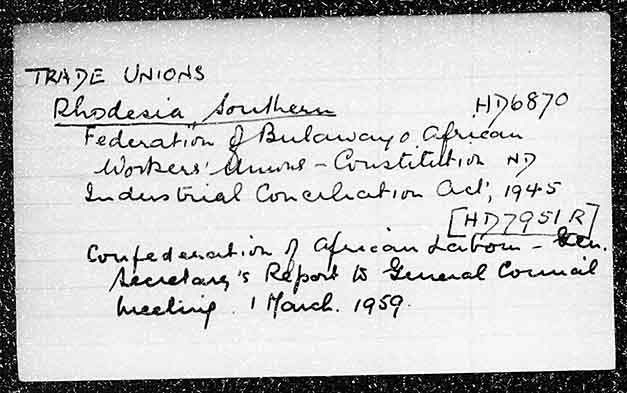 TRADE UNIONS
Rhodesia, Southern HD6870
Federation of Bulawayo African
Workers' Unions - Constitution ND
Industrial Conciliation Act, 1945
[HD7951R]
Confederation of African Labour - Gen.
Secretary's Report to General Council
meeting. 1 March. 1959.